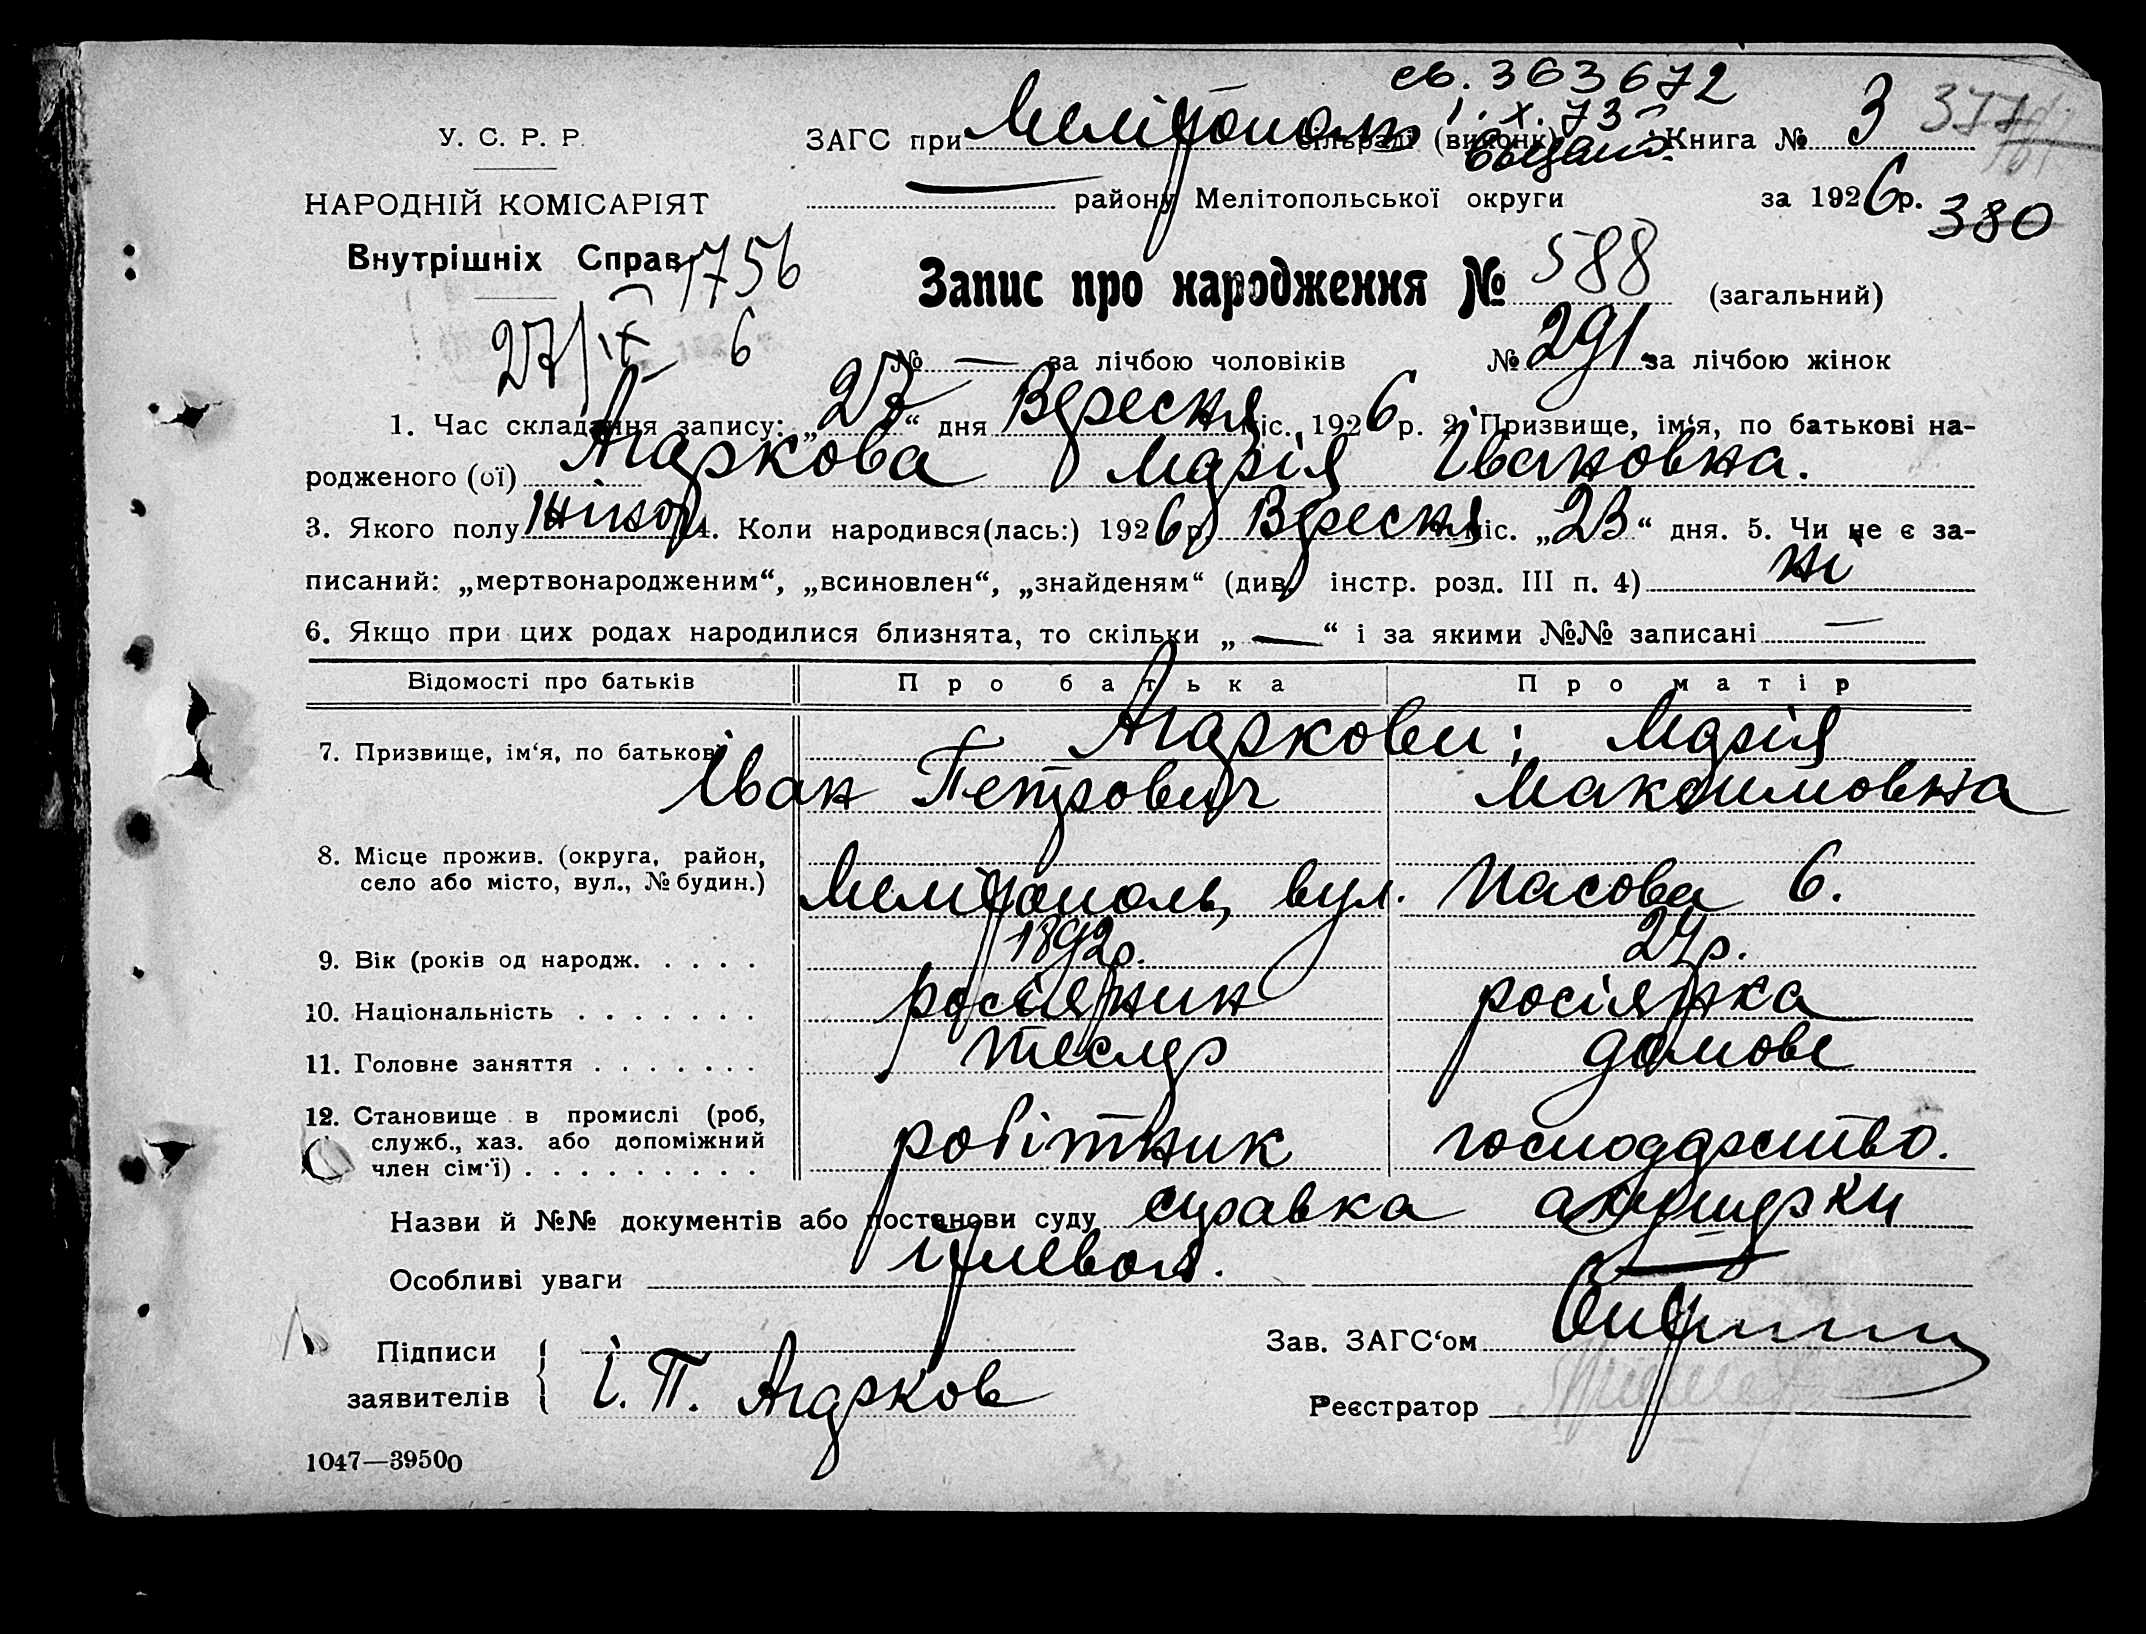 св. 363672
1. X. 73
У. С. Р. Р. ЗАГС при Мелітополь сільраді (виконк) Книга № 3
выдано.
НАРОДНІЙ КОМІСАРІЯТ — району Мелітопольської округи за 1926 р. 380
Внутрішніх Справ 1756
Запис про народження № 588 (загальний)
27/IX 6
№ — за лічбою чоловіків № 291 за лічбою жінок
1. Час складання запису: „27“ дня Вересня міс. 1926 р. 2. Призвище, ім‘я, по батькові на-
родженого (ої) Агаркова Марія Івановна.
3. Якого полу жіноч. 4. Коли народився(лась:) 1926 р. Вересня міс. „23“ дня. 5. Чи не є за-
писаний: „мертвонародженим“, „всиновлен“, „знайденям“ (див. інстр. розд. III п. 4) ні
6. Якщо при цих родах народилися близнята, то скільки „—“ і за якими №№ записані —
Відомості про батьків Про батька Про матір
7. Призвище, ім‘я, по батькові Агаркови: Марія
Іван Петрович Максимовна
8. Місце прожив. (округа, район,
село або місто, вул., № будин.) Мелітополь, вул. 6.
9. Вік (років од народж. . . . . 1892р. 27р.
10. Національність . . . . . . . росіянин росіянка
11. Головне заняття . . . . . . . тесляр домове
12. Становище в промислі (роб,
служб., хаз. або допоміжний
член сім‘ї) . . . . . . . . . робітник господарство.
Назви й №№ документів або постанови суду справка акушерки
Особливі уваги
Підписи
заявителів І. П. Агарков
Зав. ЗАГС‘ом
Реєстратор
1047—39500